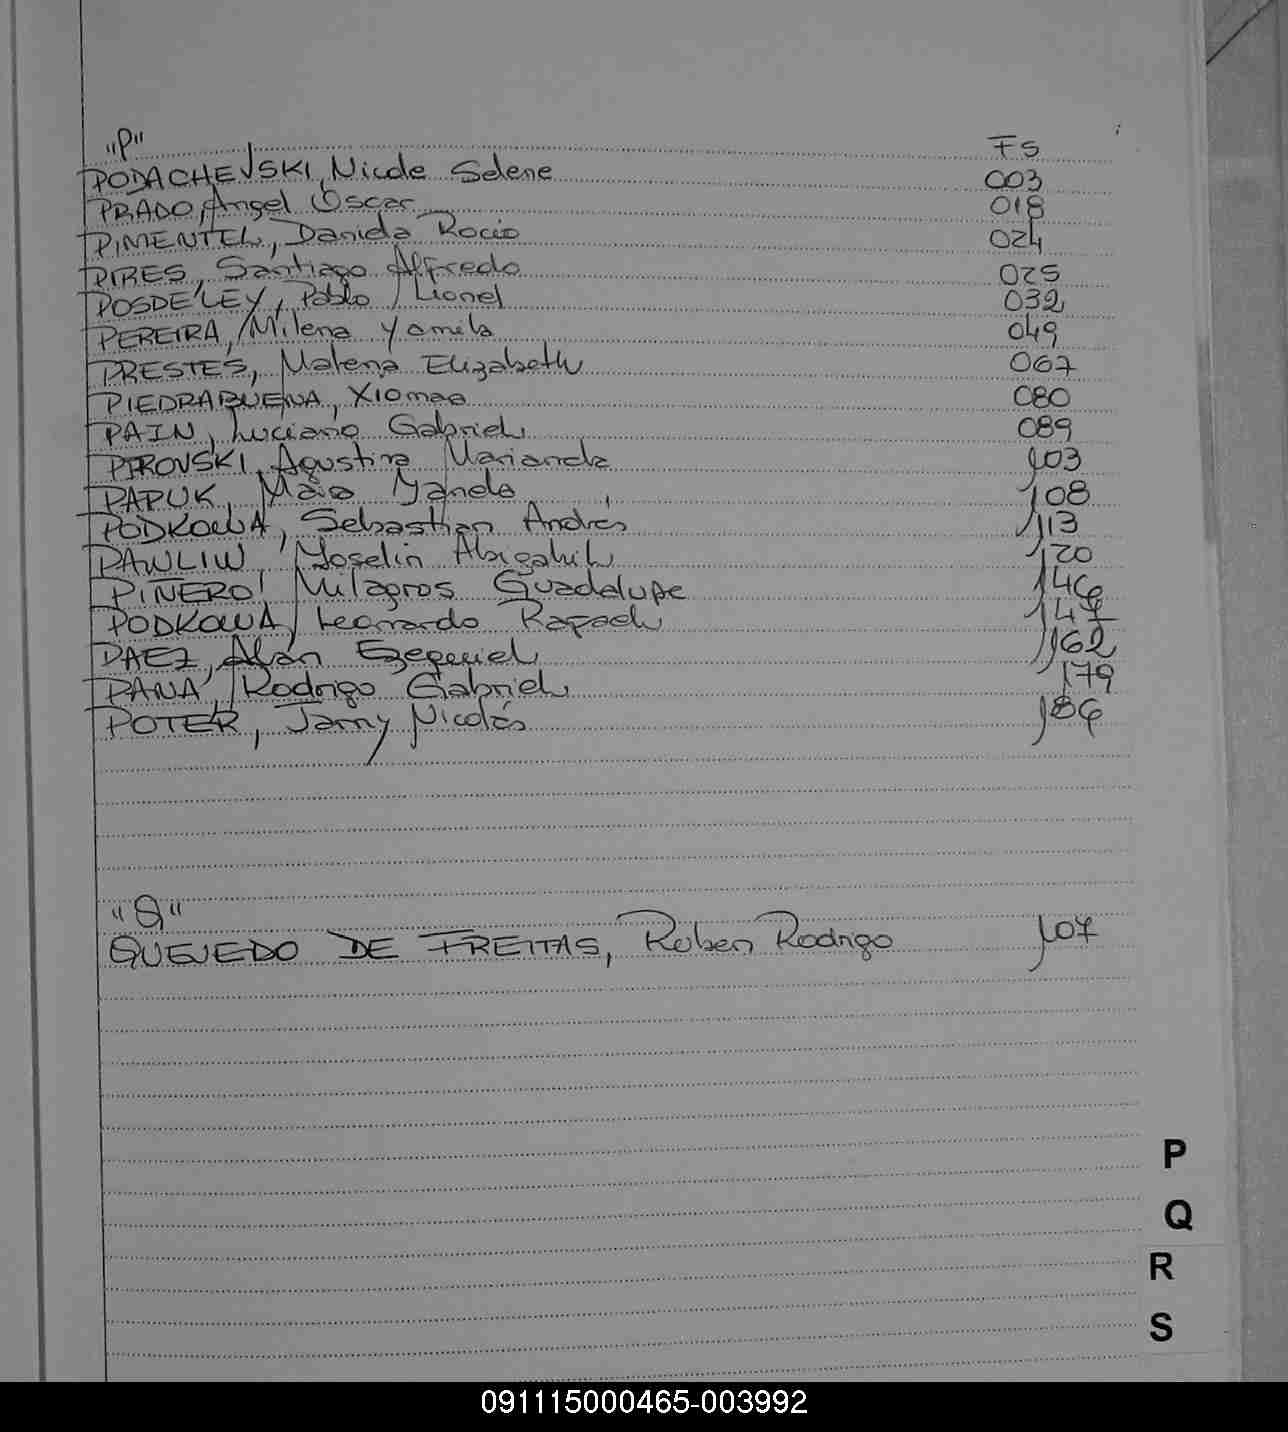 "P" Fs
PODACHEVSKI, Nicole Selene 003
PRADO, Angel Oscar 018
PIMENTEL, Daniela Rocio 024
PIRES, Santiago Alfredo 025
POSDELEY, Pablo Lionel 032
PEREIRA, Milena Yamila 049
PRESTES, Malena Elizabeth 067
PIEDRABUENA, Xiomara 080
PAIN, Luciano Gabriel 089
PIROVSKI, Agustina Marianela 103
PAPUK, Maira Yanela 108
PODKOWA, Sebastian Andrés 113
PAWLIW, Yoselin Abigahil 120
PIÑERO, Milagros Guadalupe 146
PODKOWA, Leonardo Rafael 147
PAEZ, Alan Ezequiel 162
PANA, Rodrigo Gabriel 179
POTER, Jamy Nicolás 186
"Q"
QUEVEDO DE FREITAS, Ruben Rodrigo 107
P
Q
R
S
091115000465-003992